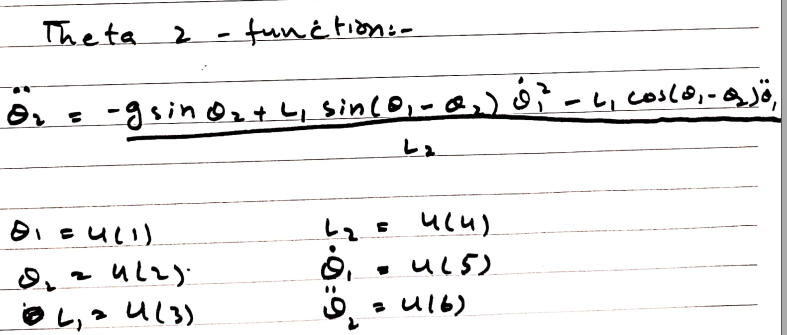 Theta 2 - function:-
θ̈₂ = -g sin θ₂ + L₁ sin(θ₁ - θ₂) θ̇₁² - L₁ cos(θ₁ - θ₂) θ̈₁
L₂
θ₁ = u(1) L₂ = u(4)
θ₂ = u(2). θ̇₁ = u(5)
L₁ = u(3) θ̈₂ = u(6)